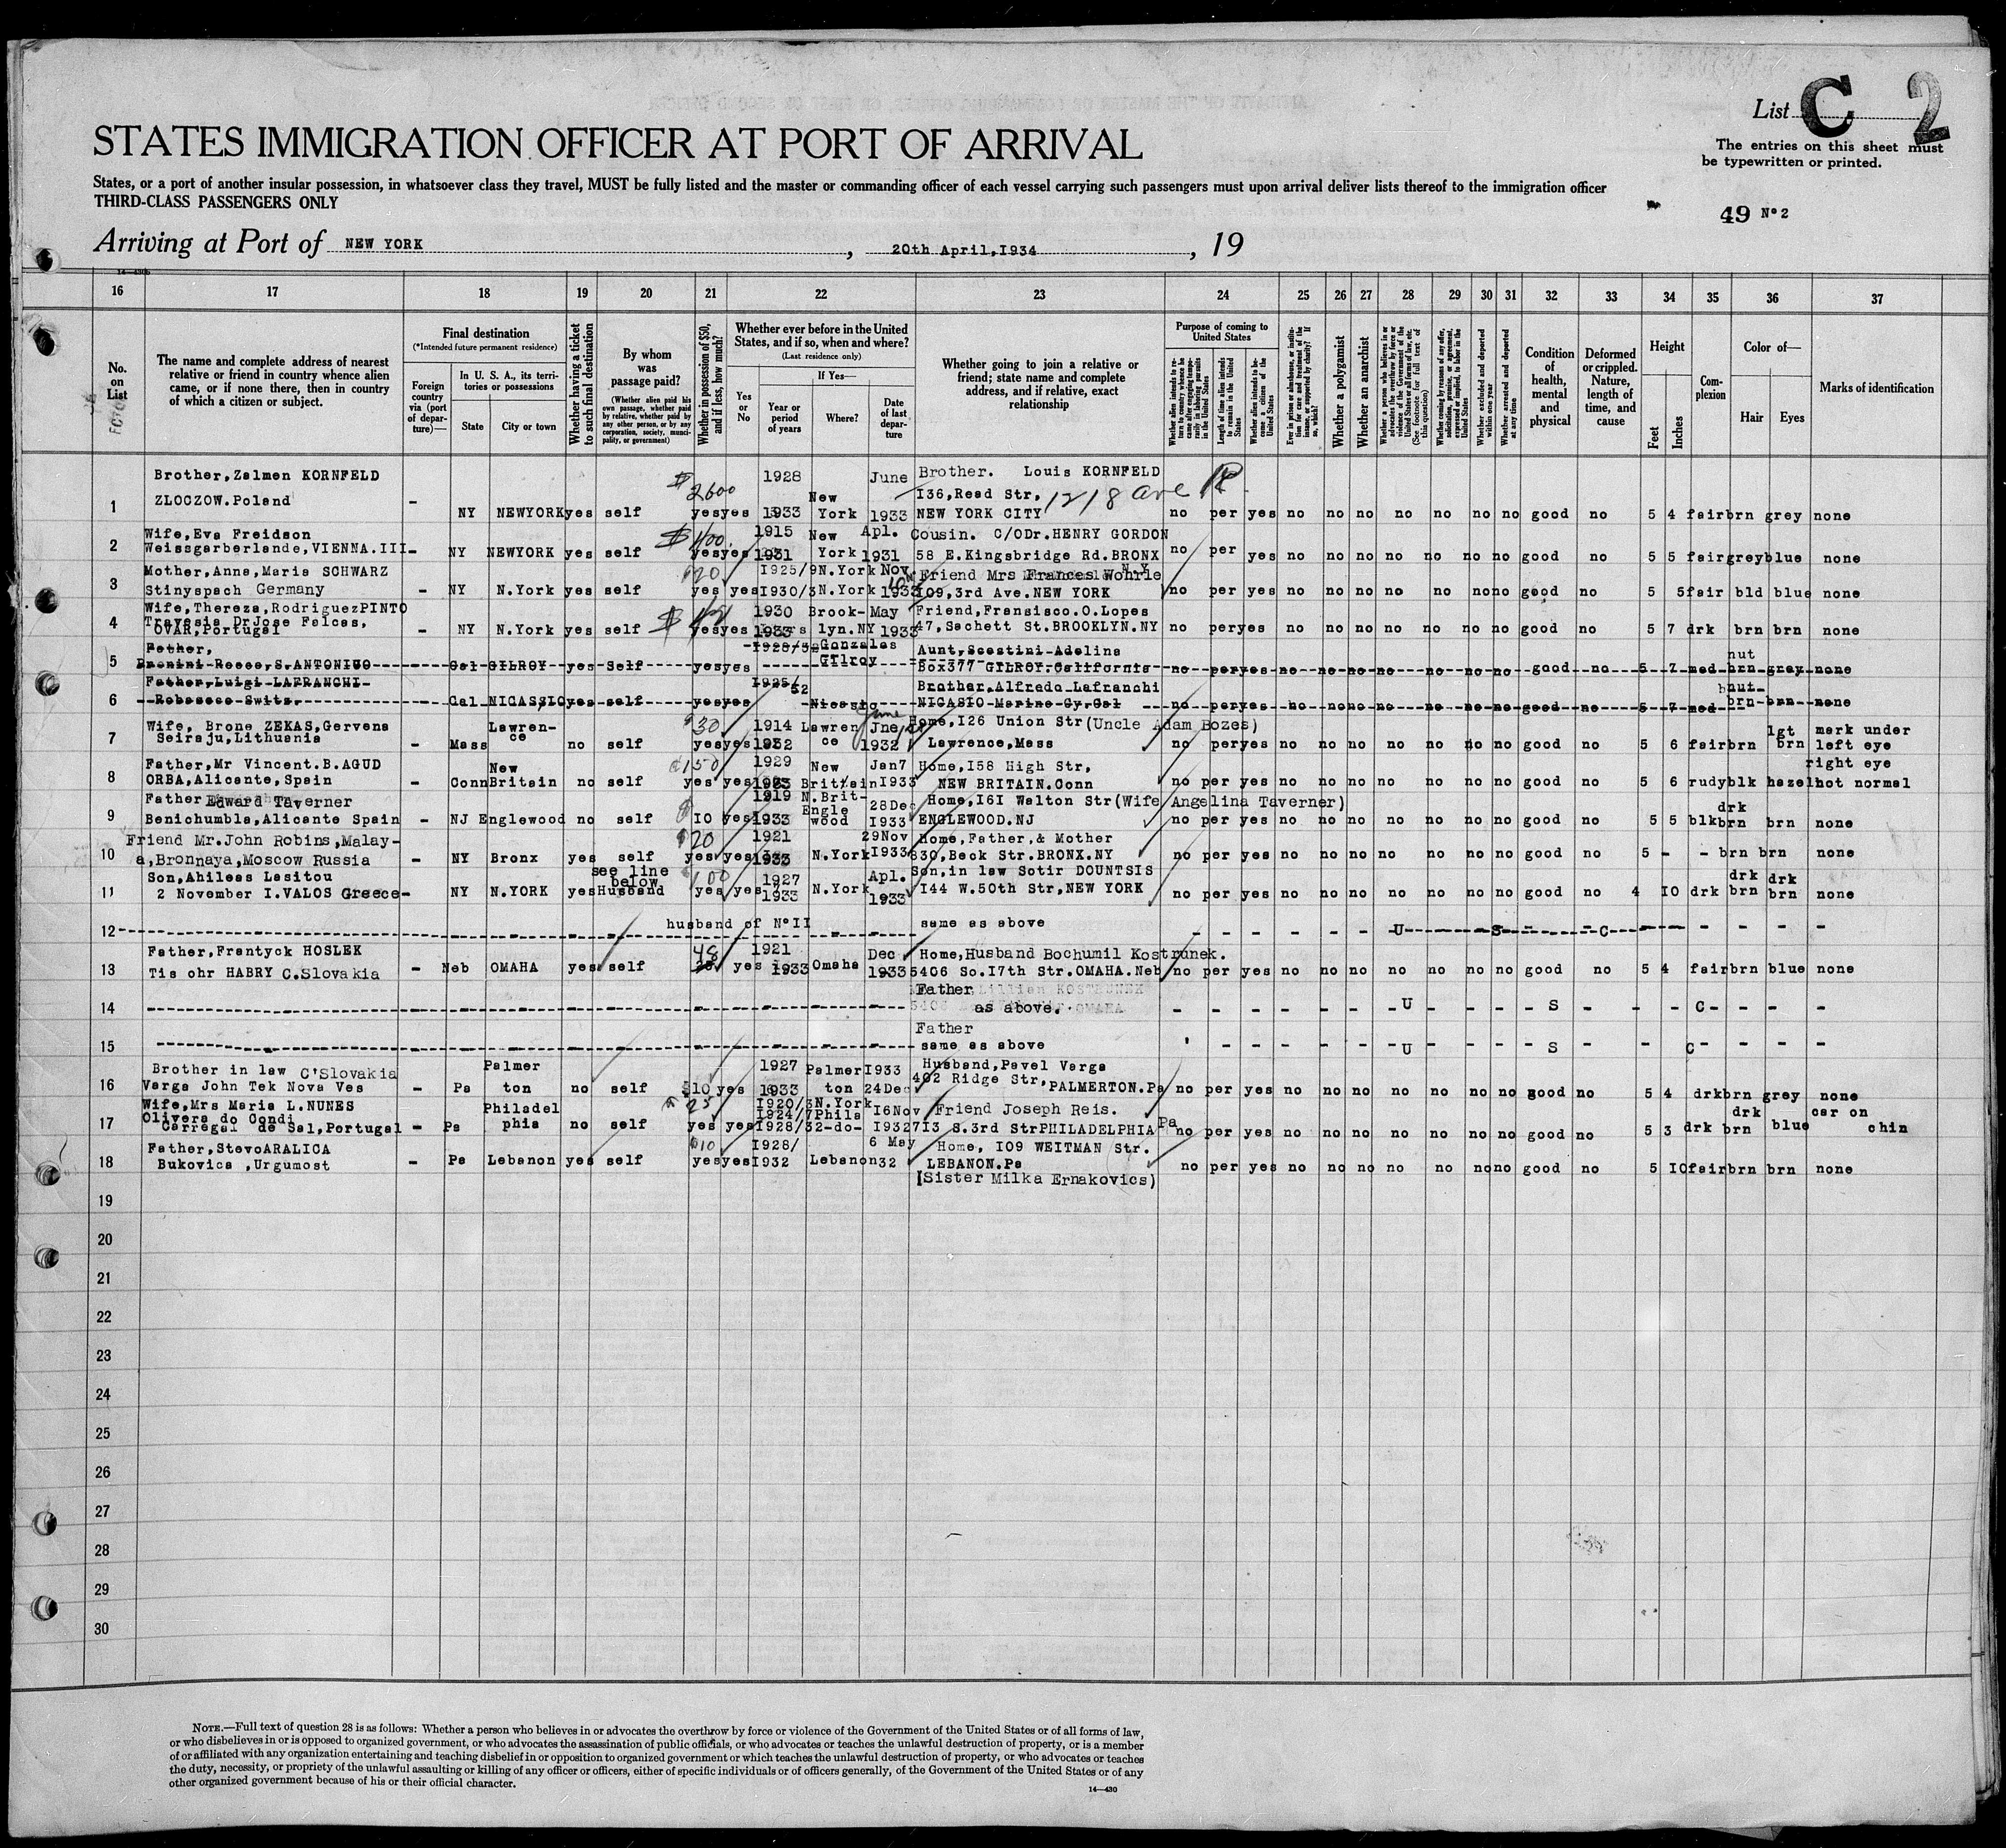 List C 2
The entries on this sheet must
be typewritten or printed.
STATES IMMIGRATION OFFICER AT PORT OF ARRIVAL
States, or a port of another insular possession, in whatsoever class they travel, MUST be fully listed and the master or commanding officer of each vessel carrying such passengers must upon arrival deliver lists thereof to the immigration officer
THIRD-CLASS PASSENGERS ONLY
49 Nº 2
Arriving at Port of NEW YORK, 20th April, I934, 19
16 17 18 19 20 21 22 23 24 25 26 27 28 29 30 31 32 33 34 35 36 37
No. on List
The name and complete address of nearest relative or friend in country whence alien came, or if none there, then in country of which a citizen or subject.
Final destination
(*Intended future permanent residence)
Foreign country via (port of departure)—
In U. S. A., its territories or possessions
State
City or town
Whether having a ticket to such final destination
By whom was passage paid?
(Whether alien paid his own passage, whether paid by relative, whether paid by any other person, or by any corporation, society, municipality, or government)
Whether in possession of $50, and if less, how much?
Whether ever before in the United States, and if so, when and where?
(Last residence only)
Yes or No
If Yes—
Year or period of years
Where?
Date of last departure
Whether going to join a relative or friend; state name and complete address, and if relative, exact relationship
Purpose of coming to United States
Whether alien intends to return to country whence he came after engaging temporarily in laboring pursuits in the United States
Length of time alien intends to remain in the United States
Whether alien intends to become a citizen of the United States
Ever in prison or almshouse, or institution for care and treatment of the insane, or supported by charity? If so, which?
Whether a polygamist
Whether an anarchist
Whether a person who believes in or advocates the overthrow by force or violence of the Government of the United States or all forms of law, etc. (See footnote for full text of this question)
Whether coming by reasons of any offer, solicitation, promise, or agreement, expressed or implied, to labor in the United States
Whether excluded and deported within one year
Whether arrested and deported at any time
Condition of health, mental and physical
Deformed or crippled. Nature, length of time, and cause
Height
Feet
Inches
Complexion
Color of—
Hair
Eyes
Marks of identification
1 Brother, Zalmen KORNFELD
ZLOCZOW. Poland - NY NEWYORK yes self $2600 yes yes 1928 1933 New York June 1933 Brother. Louis KORNFELD
I36, Read Str, 1218 ave
NEW YORK CITY no per yes no no no no no no no good no 5 4 fair brn grey none
2 Wife, Eva Freidson
Weissgarberlande, VIENNA. III - NY NEWYORK yes self $100 yes yes 1915 1931 New York Apl. 1931 Cousin. C/O Dr. HENRY GORDON
58 E. Kingsbridge Rd. BRONX N.Y no per yes no no no no no no no good no 5 5 fair grey blue none
3 Mother, Anna, Maria SCHWARZ
Stinyspach Germany - NY N.York yes self $20 yes yes I925/9 N.York I930/3 N.York Nov. 1933 Friend Mrs Frances Wohrle
I09, 3rd Ave. NEW YORK no per yes no no no no no no no good no 5 5 fair bld blue none
4 Wife, Thereza, Rodriguez PINTO
Travesia Dr Jose Falcas,
OVAR, Portugal - NY N.York yes self yes yes 1930 1933 Brook-lyn. NY May 1933 Friend, Fransisco. O. Lopes
47, Sachett St. BROOKLYN. NY no per yes no no no no no no no good no 5 7 drk brn brn none
5 Father,
S. ANTONIUO Cal GILROY yes Self yes yes Gonzales Gilroy Aunt, Scestini Adelina
Box 377 GILROY. California no per yes no no no no no no no good no 5 7 med nut brn grey none
6 Father, Luigi LAFRANCHI
Cal NICASSIO yes self yes yes 1925/32 Nicasio Brother, Alfredo Lafranchi
NICASIO Marine Cy. Cal no per yes no no no no no no no good no 5 7 med nut brn brn none
7 Wife, Brone ZEKAS, Gervena
Seiraju, Lithuania - Mass Lawren-ce no self $30 yes yes 1914 1932 Lawren ce June Jne 1932 Home, I26 Union Str (Uncle Adam Bozes)
Lawrence, Mass no per yes no no no no no no no good no 5 6 fair brn lgt brn mark under left eye
8 Father, Mr Vincent. B. AGUD
ORBA, Alicante, Spain - Conn New Britain no self $150 yes yes 1929 1933 New Britain Jan7 I933 Home, I58 High Str,
NEW BRITAIN. Conn no per yes no no no no no no no good no 5 6 rudy blk hazel right eye not normal
9 Father Edward Taverner
Benichumbla, Alicante Spain - NJ Englewood no self $ IO yes 1919 1933 N. Brit- Engle wood 28Dec I933 Home, I6I Walton Str (Wife Angelina Taverner)
ENGLEWOOD. NJ no per yes no no no no no no no good no 5 5 blk drk brn brn none
10 Friend Mr. John Robins, Malay-
a, Bronnaya, Moscow Russia - NY Bronx yes self $20 yes yes 1921 1933 N.York 29Nov I933 Home, Father, & Mother
830, Beck Str. BRONX. NY no per yes no no no no no no no good no 5 - - brn brn none
11 Son, Ahileas Lasitou
2 November I. VALOS Greece - NY N.YORK yes see line below Husband $100 yes yes 1927 1933 N.York Apl. 1933 Son, in law Sotir DOUNTSIS
I44 W. 50th Str, NEW YORK no per yes no no no no no no no good no 4 IO drk drk brn drk brn none
12 husband of Nº II same as above U S C
13 Father, Frantyck HOSLEK
Tis ohr HABRY C. Slovakia - Neb OMAHA yes self 48 yes 1921 1933 Omaha Dec 1933 Home, Husband Bochumil Kostrunek.
5406 So. I7th Str. OMAHA. Neb no per yes no no no no no no no good no 5 4 fair brn blue none
14 Father
as above. U S C
15 Father
same as above U S C
16 Brother in law C'Slovakia
Varga John Tek Nova Ves - Pa Palmer ton no self $10 yes 1927 1933 Palmer ton I933 24Dec Husband, Pavel Varga
402 Ridge Str, PALMERTON. Pa no per yes no no no no no no no good no 5 4 drk brn grey none
17 Wife, Mrs Maria L. NUNES
Olivera do Condi
Carregal de Sal, Portugal - Pa Philadel phia no self $25 yes yes I920/3 N.York I924/7 Phila I928/32 -do- I6Nov I932 Friend Joseph Reis.
7I3 S. 3rd Str PHILADELPHIA Pa no per yes no no no no no no no good no 5 3 drk drk brn blue car on chin
18 Father, Stevo ARALICA
Bukovica, Urgumost - Pa Lebanon yes self $10 yes yes I928/ I932 Lebanon 6 May 32 Home, I09 WEITMAN Str.
LEBANON. Pa no per yes no no no no no no no good no 5 IO fair brn brn none
(Sister Milka Ernakovics)
19
20
21
22
23
24
25
26
27
28
29
30
NOTE.—Full text of question 28 is as follows: Whether a person who believes in or advocates the overthrow by force or violence of the Government of the United States or of all forms of law,
or who disbelieves in or is opposed to organized government, or who advocates the assassination of public officials, or who advocates or teaches the unlawful destruction of property, or is a member
of or affiliated with any organization entertaining and teaching disbelief in or opposition to organized government or which teaches the unlawful destruction of property, or who advocates or teaches
the duty, necessity, or propriety of the unlawful assaulting or killing of any officer or officers, either of specific individuals or of officers generally, of the Government of the United States or of any
other organized government because of his or their official character.
14—430